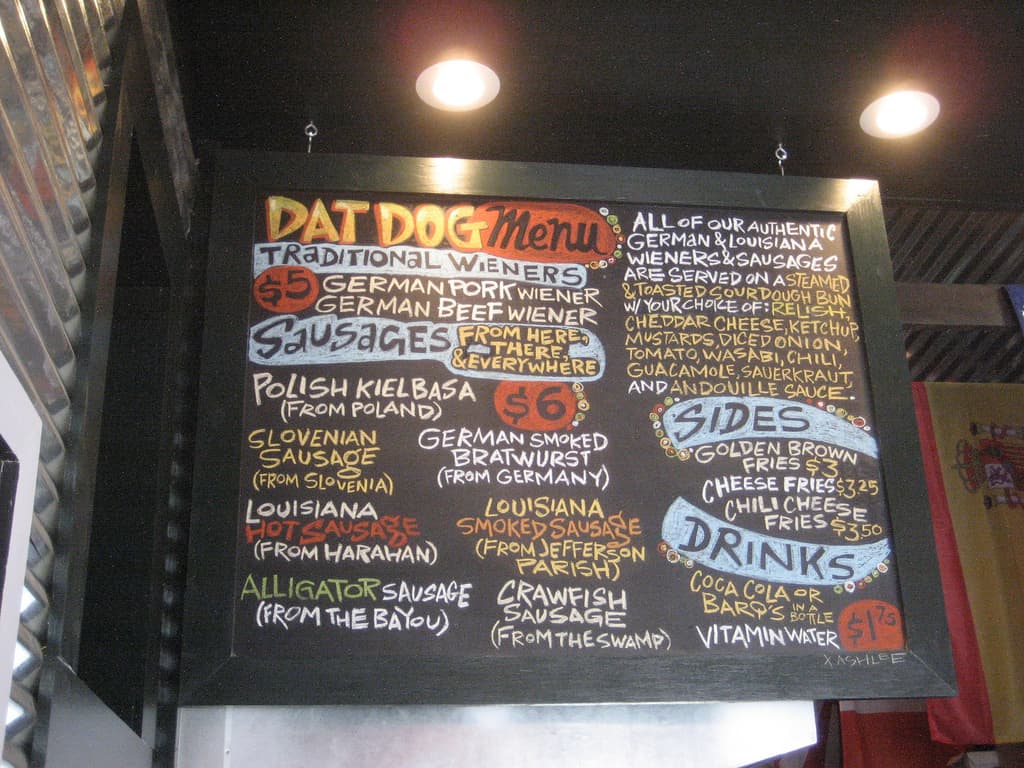 DAT DOG Menu
TRADITIONAL WIENERS
$5
GERMAN PORK WIENER
GERMAN BEEF WIENER
SAUSAGES
FROM HERE,
THERE,
& EVERYWHERE
$6
POLISH KIELBASA
(FROM POLAND)
SLOVENIAN
SAUSAGE
(FROM SLOVENIA)
GERMAN SMOKED
BRATWURST
(FROM GERMANY)
LOUISIANA
HOT SAUSAGE
(FROM HARAHAN)
LOUISIANA
SMOKED SAUSAGE
(FROM JEFFERSON
PARISH)
ALLIGATOR SAUSAGE
(FROM THE BAYOU)
CRAWFISH
SAUSAGE
(FROM THE SWAMP)
ALL OF OUR AUTHENTIC
GERMAN & LOUISIANA
WIENERS & SAUSAGES
ARE SERVED ON A STEAMED
& TOASTED SOURDOUGH BUN
W/ YOUR CHOICE OF: RELISH,
CHEDDAR CHEESE, KETCHUP,
MUSTARDS, DICED ONION,
TOMATO, WASABI, CHILI,
GUACAMOLE, SAUERKRAUT,
AND ANDOUILLE SAUCE.
SIDES
GOLDEN BROWN
FRIES $3
CHEESE FRIES $3.25
CHILI CHEESE
FRIES $3.50
DRINKS
COCA COLA OR
BARQ'S IN A BOTTLE
VITAMIN WATER
$1.75
X ASHLEE